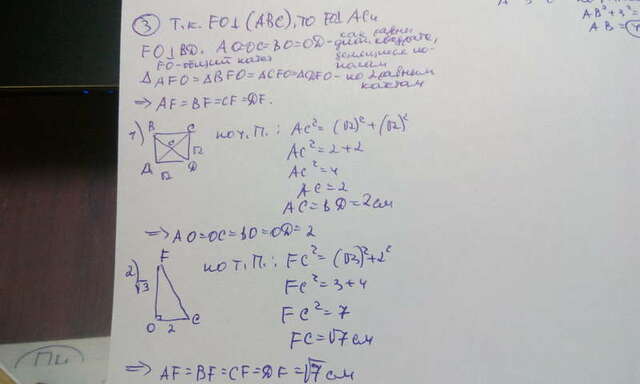 ③ Т.к. FO⊥(ABC), то FO⊥AC и
FO⊥BD. AO=OC=BO=OD - как равные
диагонали квадрата,
FO-общий катет
делящиеся по-
полам
ΔAFO=ΔBFO=ΔCFO=ΔDFO - по 2 равным
катетам
⇒ AF=BF=CF=DF.
1) B C
O
√2
A √2 D
по т.П.: AC²=(√2)²+(√2)²
AC²=2+2
AC²=4
AC=2
AC=BD=2см
⇒ AO=OC=BO=OD=2
2) F
√3
O 2 C
по т.П.: FC²=(√3)²+2²
FC²=3+4
FC²=7
FC=√7 см
⇒ AF=BF=CF=DF=√7 см
AB²+3²=
AB=